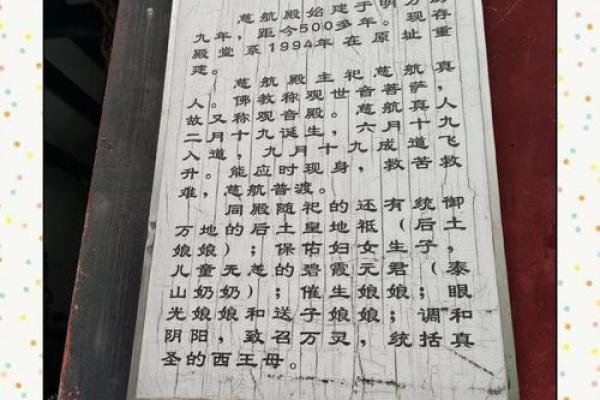 慈航殿始建于明万历
九年，距今500多年。现存
殿堂系1994年在原址重
建。
慈航殿主祀慈航真
人。佛教称观世音菩萨，
故又称观音。慈航真人
二月十九诞生，六月十九
入道，九月十九成道飞
升。能应时现身救苦救
难，慈航普渡。
同殿随祀的还有（统御
万地的）后土皇地祇（后土
娘娘）；保佑妇女生子，
儿童无恙的碧霞元君（泰
山奶奶）；催生娘娘；眼
光娘娘和送子娘娘；调和
阴阳，致召万灵，统括真
圣的西王母。